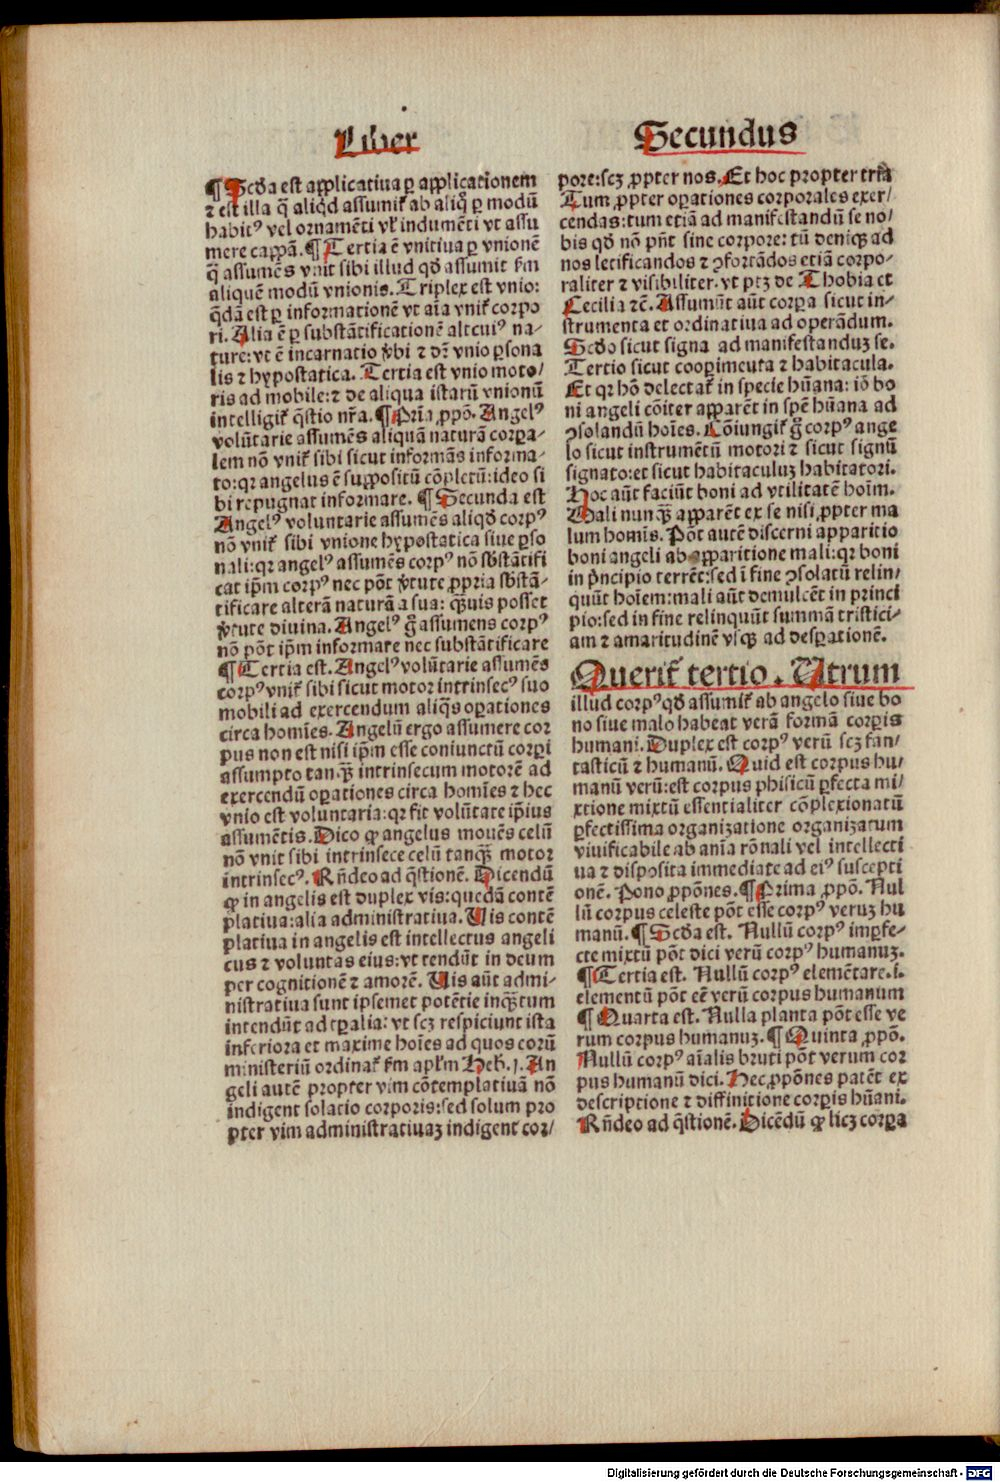 Liber
Secundus
¶ Scḋa est applicatiua ꝑ applicationem
⁊ est illa q̄ aliqd̓ assumit᷑ ab aliq̊ ꝑ modū
habitꝰ vel ornamēti vl̓ indumēti vt assu
mere cappā. ¶ Tertia ē vnitiua ꝑ vnionē
q̄ assumēs vnit sibi illud qd̓ assumit ẜm
aliquē modū vnionis. Triplex est vnio:
q̄dā est ꝑ informationē vt aīa vnit᷑ corpo
ri. Alia ē ꝑ substātificationē altcuiꝰ na⸗
ture: vt ē incarnatio v̓bi ⁊ dr̄ vnio ꝑsona
lis ⁊ hypostatica. Tertia est vnio moto/
ris ad mobile: ⁊ de aliqua istarū vnionū
intelligit᷑ q̄stio nr̄a. ¶ Prīa ꝓpō. Angelꝰ
volūtarie assumēs aliquā naturā corꝑa⸗
lem nō vnit᷑ sibi sicut informās informa⸗
to: qr angelus ē suppositū cōpletū: ideo si
bi repugnat informare. ¶ Secunda est
Angelꝰ voluntarie assumēs aliqd̓ corpꝰ
nō vnit᷑ sibi vnione hypostatica siue ꝑso
nali: qr angelꝰ assumēs corpꝰ nō sb̓stātifi
cat ip̄m corpꝰ nec pōt v̓tute ꝓpria sb̓stā⸗
tificare alterā naturā a sua: q̄uis posset
v̓tute diuina. Angelꝰ g̊ assumens corpꝰ
nō pōt ip̄m informare nec substātificare
¶ Tertia est. Angelꝰ volūtarie assumēs
corpꝰ vnit᷑ sibi sicut motor intrinsecꝰ suo
mobili ad exercendum aliq̄s oꝑationes
circa homīes. Angelū ergo assumere cor
pus non est nisi ip̄m esse coniunctū corꝑi
assumpto tanq̄ꝫ intrinsecum motorē ad
exercendū oꝑationes circa homīes ⁊ hec
vnio est voluntaria: qr fit volūtate ip̄ius
assumētis. Dico ꝙ angelus mouēs celū
nō vnit sibi intrinsece celū tanq̄ꝫ motor
intrinsecꝰ. Rn̄deo ad q̄stionē. Dicendū
ꝙ in angelis est duplex vis: quedā contē
platiua: alia administratiua. Uis contē
platiua in angelis est intellectus angeli
cus ⁊ voluntas eius: vt tendūt in deum
per cognitionē ⁊ amorē. Uis aūt admi⸗
nistratiua sunt ipsemet potētie inq̄ꝫtum
intendūt ad tꝑalia: vt scꝫ respiciunt ista
inferiora et maxime hoīes ad quos corū
ministeriū ordinat᷑ ẜm apl̓m Heb. j. An
geli autē propter vim cōtemplatiuā nō
indigent solatio corporis: sed solum pro
pter vim administratiuaꝫ indigent cor/
pore: scꝫ ꝓpter nos. Et hoc propter tria
Tum ꝓpter oꝑationes corporales exer/
cendas: tum etiā ad manifestandū se no/
bis qd̓ nō pn̄t sine corpore: tū deniqꝫ ad
nos letificandos ⁊ ꝯfortādos etiā corpo⸗
raliter ⁊ visibiliter. vt ptꝫ de Thobia et
Cecilia ⁊c̄. Assumūt aūt corꝑa sicut in⸗
strumenta et ordinatiua ad operādum.
Scḋo sicut signa ad manifestanduꝫ se.
Tertio sicut cooꝑimenta ⁊ habitacula.
Et qr hō delectat᷑ in specie hūana: iō bo
ni angeli cōiter apparēt in spē hūana ad
ꝯsolandū hoīes. Cōiungit᷑ g̊ corpꝰ ange
lo sicut instrumētū motori ⁊ sicut signū
signato: et sicut habitaculuꝫ habitatori.
Hoc aūt faciūt boni ad vtilitatē hoīm.
Mali nunq̄ꝫ apparēt ex se nisi ꝓpter ma
lum homīs. Pōt autē discerni apparitio
boni angeli ab apparitione mali: qr boni
in pn̄cipio terrēt: sed ī fine ꝯsolatū relin/
quūt hoīem: mali aūt demulcēt in princi
pio: sed in fine relinquūt summā tristici⸗
am ⁊ amaritudinē vsqꝫ ad desꝑationē.
Querit᷑ tertio. Utrum
illud corpꝰ qd̓ assumit᷑ ab angelo siue bo
no siue malo habeat verā formā corꝑis
humani. Duplex est corpꝰ verū scꝫ fan/
tasticū ⁊ humanū. Quid est corpus hu/
manū verū: est corpus phisicū ꝑfecta mi/
xtione mixtū essentialiter cōplexionatū
ꝑfectissima organizatione organizatum
viuificabile ab anīa rōnali vel intellecti
ua ⁊ disposita immediate ad eiꝰ suscepti
onē. Pono ꝓpōnes. ¶ Prima ꝓpō. Nul
lū corpus celeste pōt esse corpꝰ veruꝫ hu
manū. ¶ Scḋa est. Nullū corpꝰ imꝑfe⸗
cte mixtū pōt dici verū corpꝰ humanuꝫ.
¶ Tertia est. Nullū corpꝰ elemētare. i.
elementū pōt eē verū corpus humanum
¶ Quarta est. Nulla planta pōt esse ve
rum corpus humanuꝫ. ¶ Quinta ꝓpō.
Nullū corpꝰ aīalis bruti pōt verum cor
pus humanū dici. Hec ꝓpōnes patēt ex
descriptione ⁊ diffinitione corꝑis hūani.
Rn̄deo ad q̄stionē. Dicēdū ꝙ licꝫ corꝑa
Digitalisierung gefördert durch die Deutsche Forschungsgemeinschaft - DFG